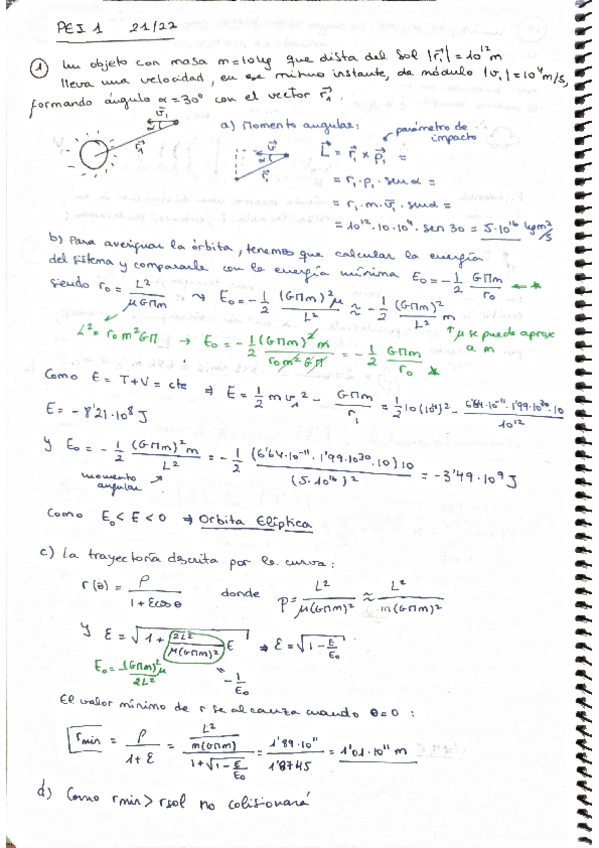 PEI 1 21/22
① Un objeto con masa m=10kg que dista del Sol |r⃗₁| = 10¹² m
lleva una velocidad, en ese mismo instante, de módulo |v⃗₁| = 10⁴ m/s,
formando ángulo α=30° con el vector r⃗₁.
v⃗₁
α
r⃗₁
a) Momento angular:
parámetro de impacto
v⃗
α
r⃗₁
L⃗ = r⃗₁ × p⃗₁ =
= r₁ · p₁ · sen α =
= r₁ · m · v⃗₁ · sen α =
= 10¹² · 10 · 10⁴ · sen 30 = 5·10¹⁶ kg m²/s
b) Para averiguar la órbita, tenemos que calcular la energía
del sistema y compararla con la energía mínima E₀ = -1/2 GMm/r₀
siendo r₀ = L²/μGMm → E₀ = -1/2 (GMm)²μ/L² ≈ -1/2 (GMm)²/L² m
L² = r₀m²GM → E₀ = -1/2 (GMm)² m/r₀m²GM = -1/2 GMm/r₀ *
↑ μ se puede aprox a m
Como E = T+V = cte ⇒ E = 1/2 m v₁² - GMm/r₁ = 1/2 10(10⁴)² - 6'64·10⁻¹¹·1'99·10³⁰·10/10¹²
E = -8'21·10⁸ J
Y E₀ = -1/2 (GMm)²m/L² = -1/2 (6'64·10⁻¹¹·1'99·10³⁰·10)10/(5·10¹⁶)² = -3'49·10⁹ J
momento angular
Como E₀ < E < 0 ⇒ Orbita Elíptica
c) La trayectoria descrita por la curva:
r(θ) = p/1+εcosθ donde p = L²/μ(GMm)² ≈ L²/m(GMm)²
Y ε = √1 + 2L²/μ(GMm)² E ⇒ ε = √1 - E/E₀
E₀ = (GMm)²μ/2L²
" -1/E₀
El valor mínimo de r se alcanza cuando θ=0:
rmin = p/1+ε = L²/m(GMm)/1+√1-E/E₀ = 1'89·10¹¹/1'8745 = 1'01·10¹¹ m
d) Como rmin > rsol no colisionará